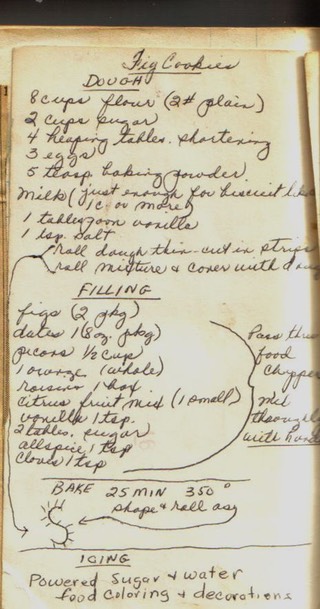 Fig Cookies
DOUGH
8 cups flour (2# plain)
2 cups sugar
4 heaping tables. shortening
3 eggs
5 teasp. baking powder
Milk (just enough for biscuit like
1 c. or more)
1 tablespoon vanilla
1 tsp. salt
roll dough thin - cut in strips
roll mixture & cover with doug
FILLING
figs (2 pkg)
dates 1 8 oz. pkg)
pecans 1/2 cup
1 orange (whole)
raisins 1 box
citrus fruit mix (1 small)
vanilla 1 tsp.
2 tables. sugar
allspice 1 tsp
cloves 1 tsp
Pass thru
food
chopper
mix
thoroughly
with hands
BAKE 25 MIN 350°
shape & roll as
ICING
Powered sugar & water
food coloring & decorations